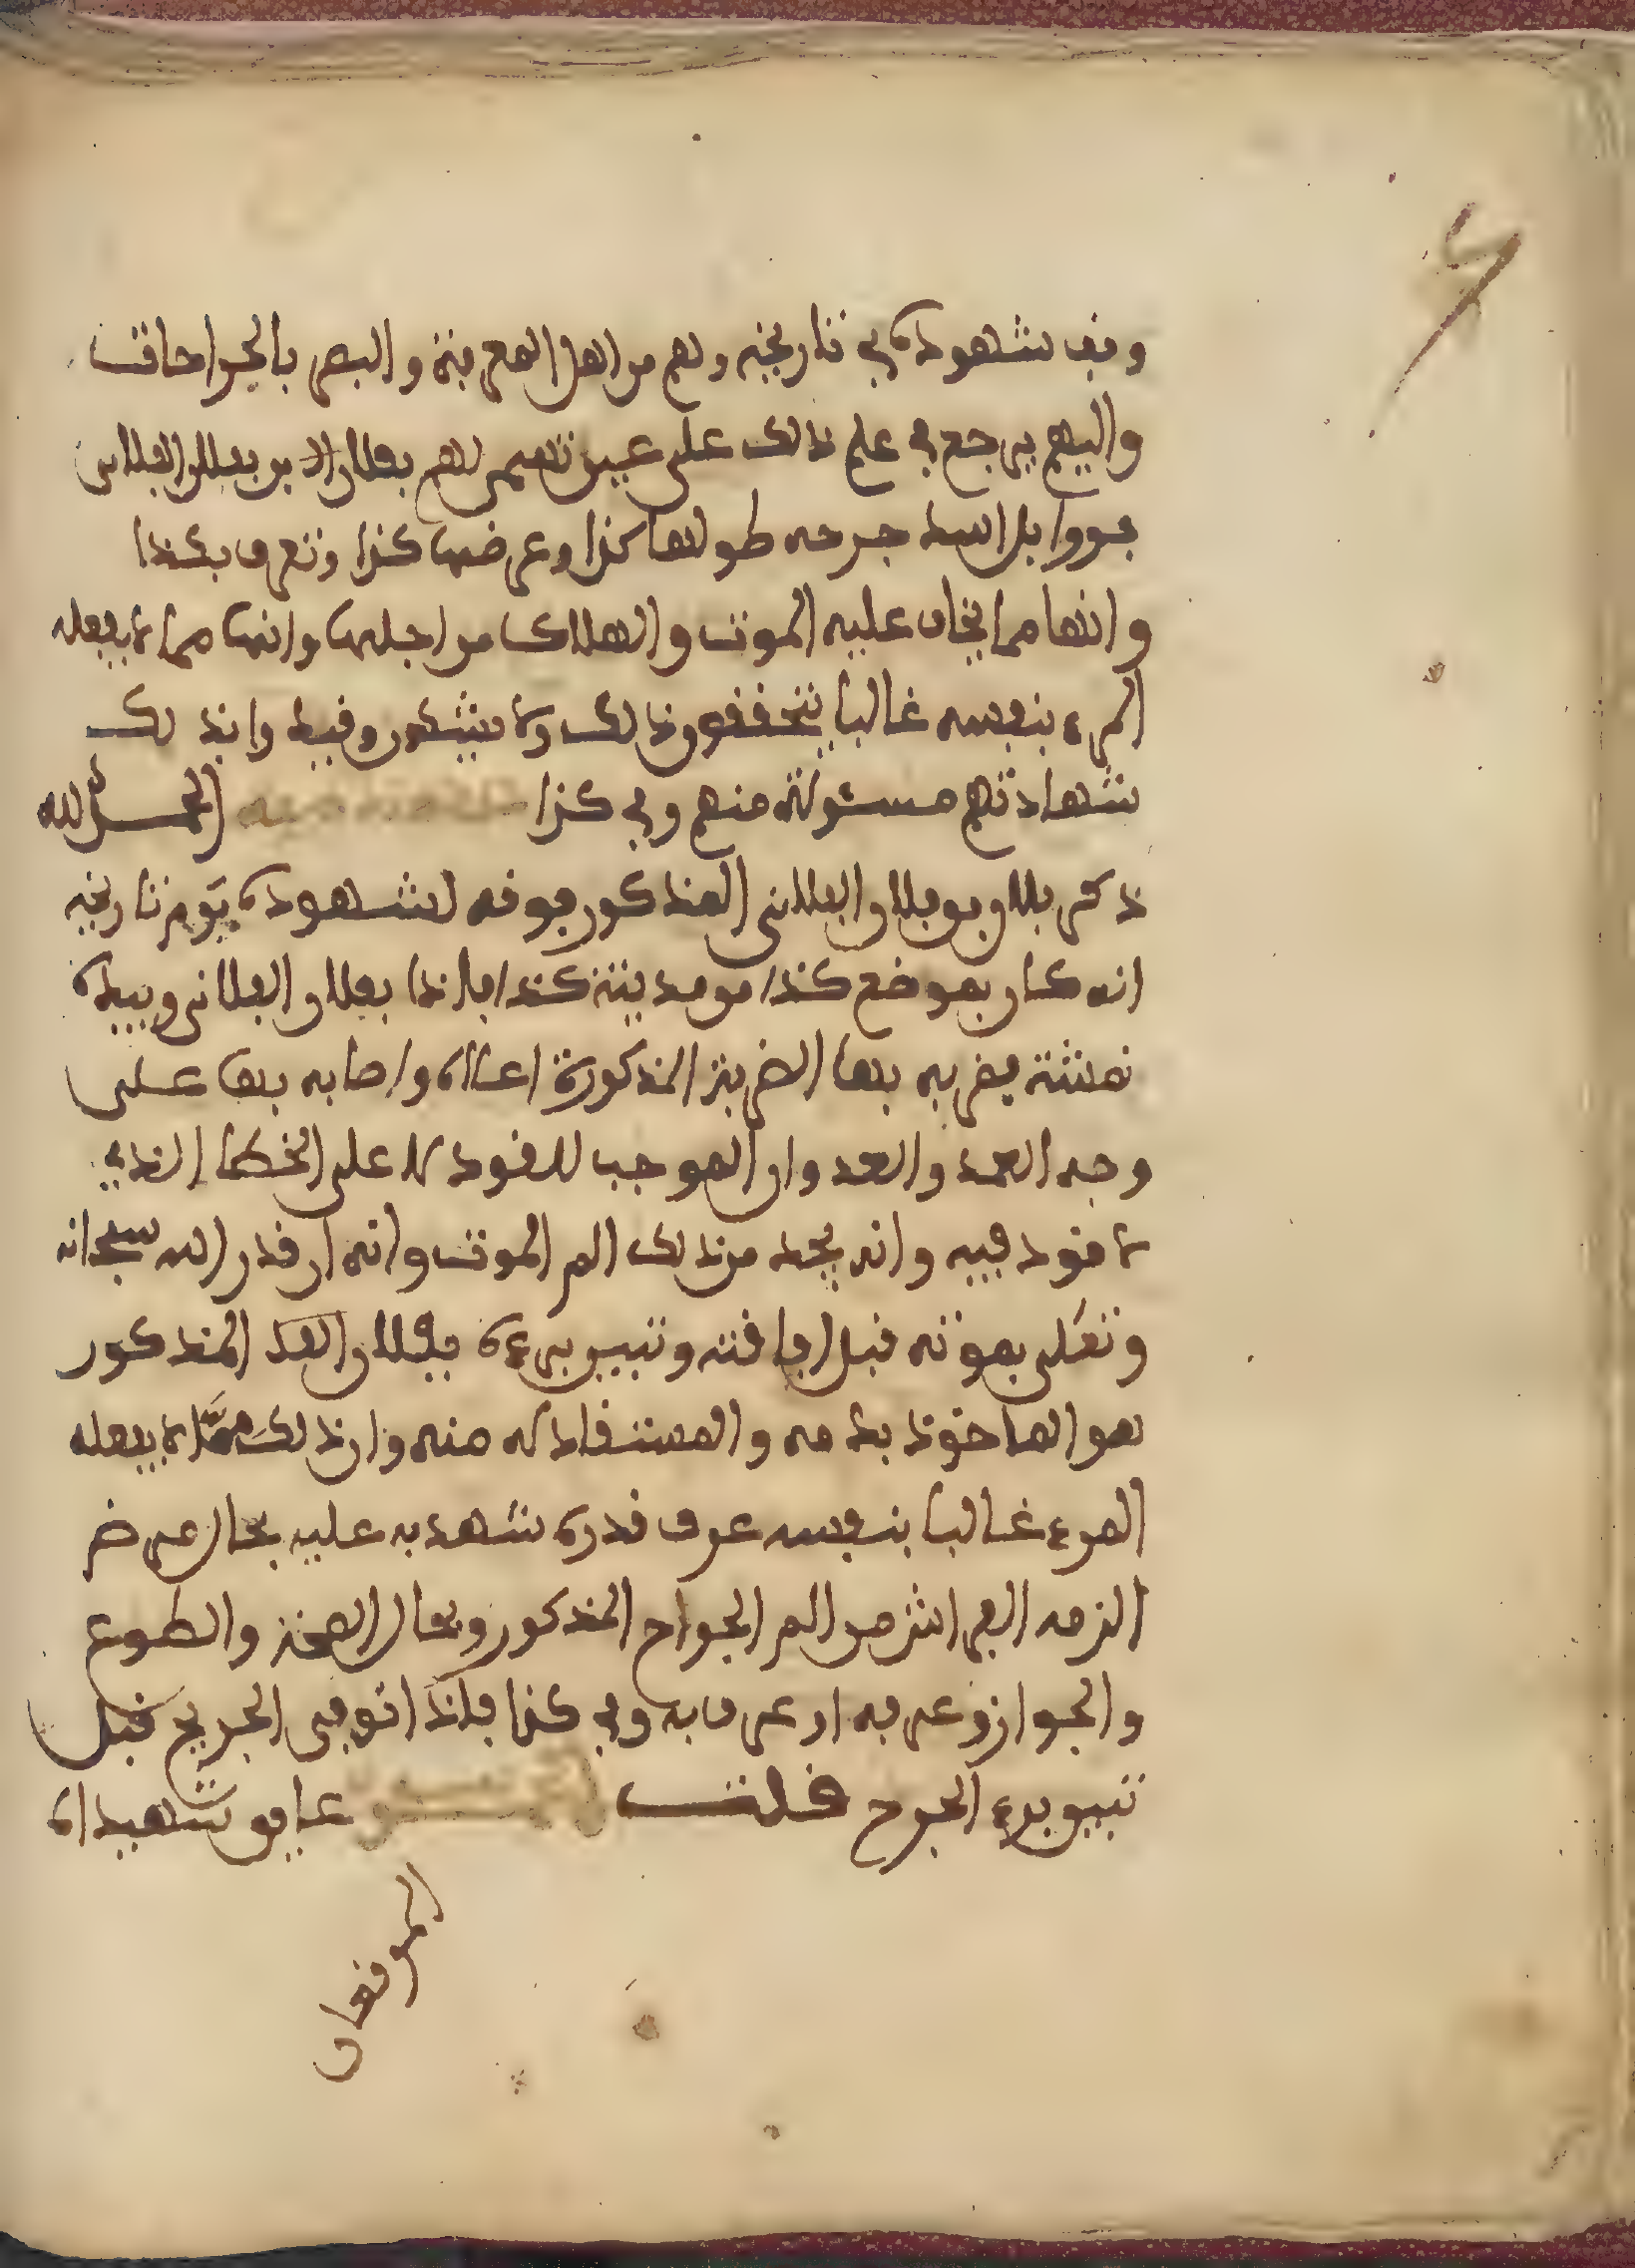 وقف شهوده في تاريخه وهم من اهل المعرفة والبصر بالجراحات
واليهم يرجع في علم ذلك على عين تسمى لهم بفلان بن فلان الفلاني
فروا براسه جرحه طولها كذا وعرضها كذا وتعرف بكذا
وانها مما يخاف عليه الموت والهلاك من اجلها وانها مما لا يفعله
المرء بنفسه غالبا يتحققون ذلك ولا يشكون فيه وبذلك
شهادتهم مسئولة منهم وفي كذا الحمد لله
ذكر فلان بن فلان الفلاني المذكور فوقه لشهوده يوم تاريخه
انه كان بموضع كذا من مدينة كذا فاذا بفلان الفلاني وبيده
نمشة يضربه بها الضربة المذكورة اعلاه واصابه بها على
وجه العمد والعدوان الموجب للقود لا على الخطا الذي
لا قود فيه وانه يجد من ذلك الم الموت وانه ان قدر الله سبحانه
وتعلى بموته قبل افاقته وتبين برءه ففلان المذكور
هو الماخوذ بدمه والمستقاد له منه وان ذلك مما لا يفعله
المرء غالبا بنفسه عرف قدره شهد به عليه بحال مرض
الزمه الفراش من الم الجراح المذكور وبحال الصحة والطوع
والجواز وعرفه او عرف به وفي كذا فاذا توفى الجريح قبل
تبين برء الجرح قلت عاين شهيداه
الموقعان